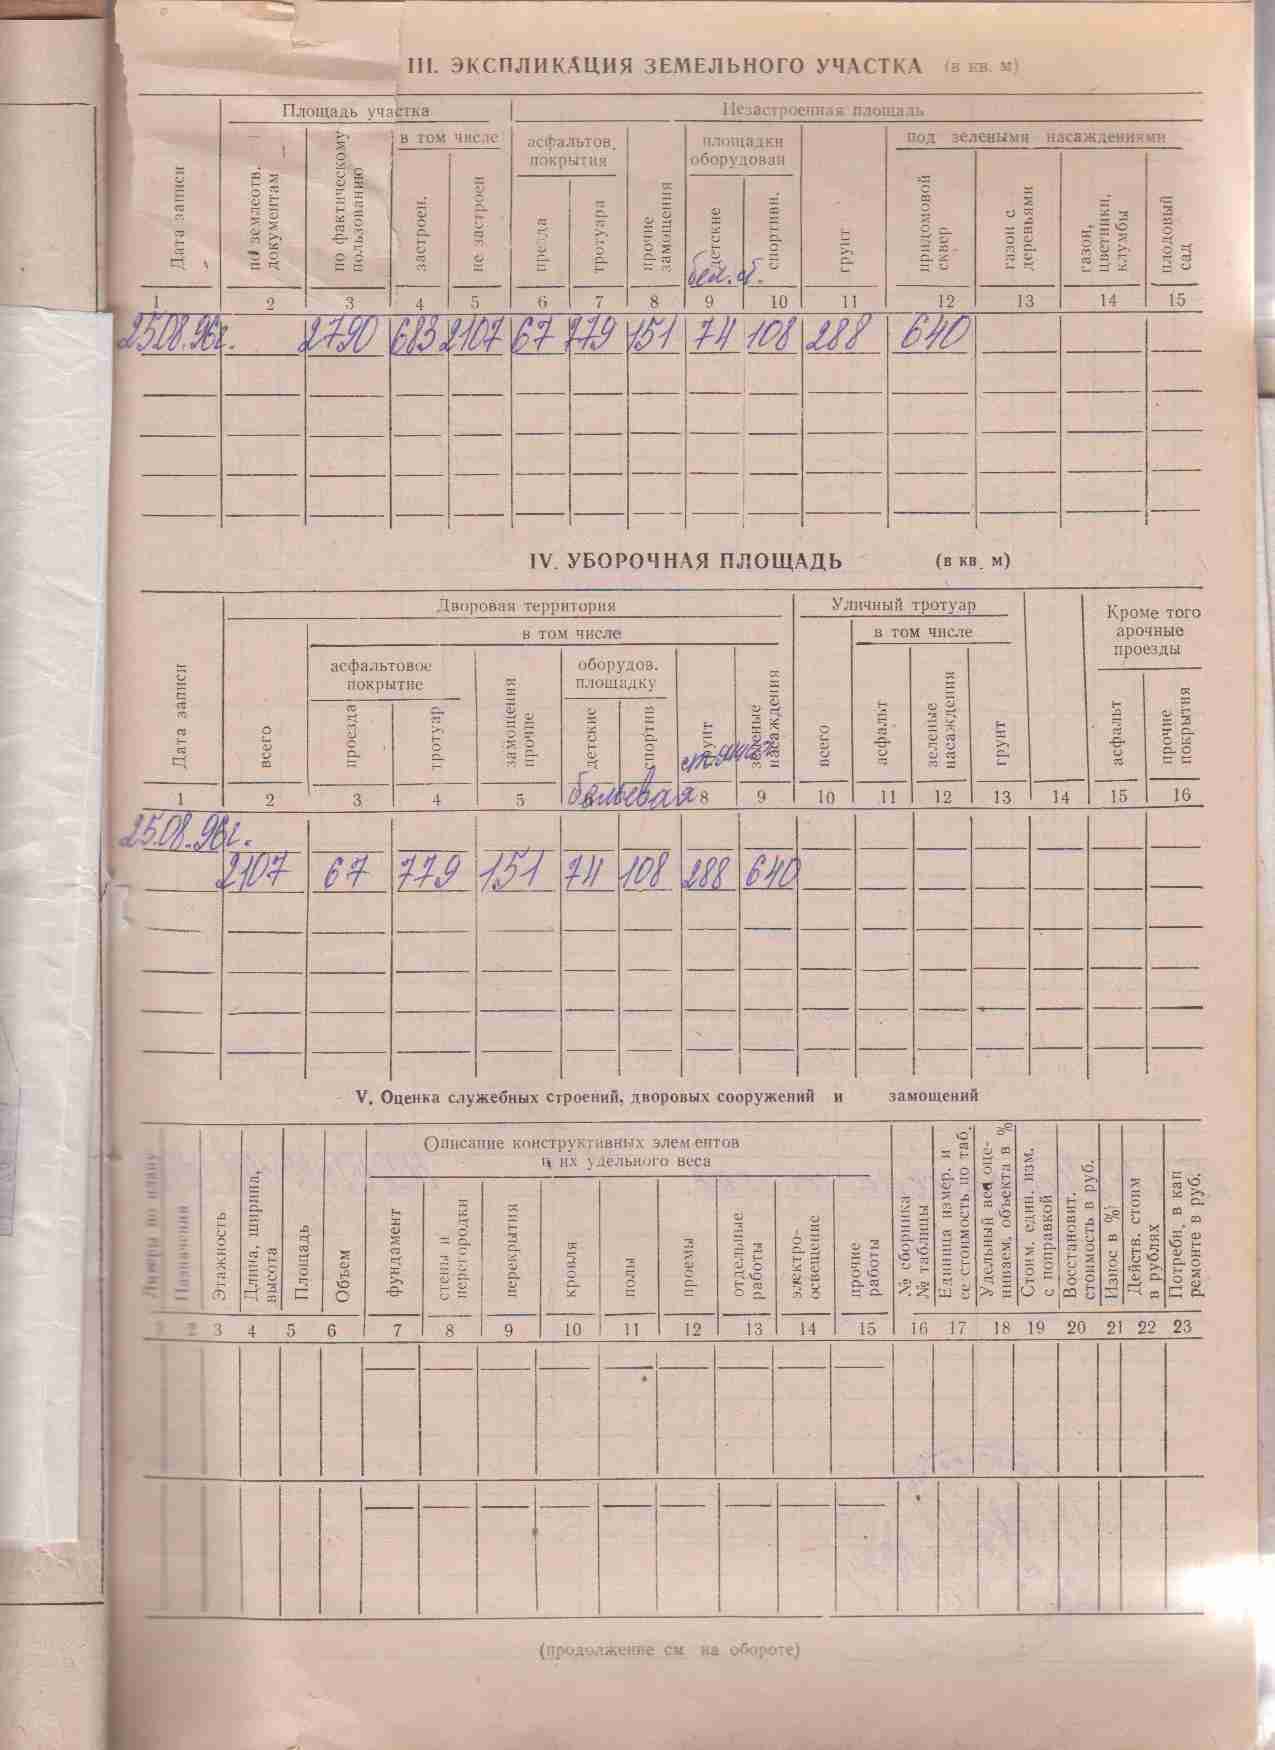 III. ЭКСПЛИКАЦИЯ ЗЕМЕЛЬНОГО УЧАСТКА (в кв. м)
Площадь участка Незастроенная площадь
Дата записи по землеотв. документам по фактическому пользованию в том числе асфальтов. покрытия прочие замощения площадки оборудован грунт под зелеными насаждениями
застроен. не застроен проезда тротуара детские спортивн. придомовой сквер газон с деревьями газон, цветники, клумбы плодовый сад
бел. в.
1 2 3 4 5 6 7 8 9 10 11 12 13 14 15
25.08.96г. 2790 683 2107 67 779 151 74 108 288 640
IV. УБОРОЧНАЯ ПЛОЩАДЬ (в кв. м)
Дворовая территория Уличный тротуар Кроме того арочные проезды
Дата записи всего в том числе всего в том числе
асфальтовое покрытие замощения прочие оборудов. площадку грунт зеленые насаждения асфальт зеленые насаждения грунт асфальт прочие покрытия
проезда тротуар детские спортив
бельевая
1 2 3 4 5 8 9 10 11 12 13 14 15 16
25.08.96г.
2107 67 779 151 74 108 288 640
V. Оценка служебных строений, дворовых сооружений и замощений
Описание конструктивных элементов
и их удельного веса
Назначения Этажность Длина, ширина, высота Площадь Объем фундамент стены и перегородки перекрытия кровля полы проемы отдельные работы электро-освещение прочие работы № сборника № таблицы Единица измер. и ее стоимость по таб. Удельный вес оце-ниваем, объекта в % Стоим. един. изм. с поправкой Восстановит. стоимость в руб. Износ в % Действ. стоим в рублях Потребн, в кап ремонте в руб.
1 2 3 4 5 6 7 8 9 10 11 12 13 14 15 16 17 18 19 20 21 22 23
(продолжение см на обороте)